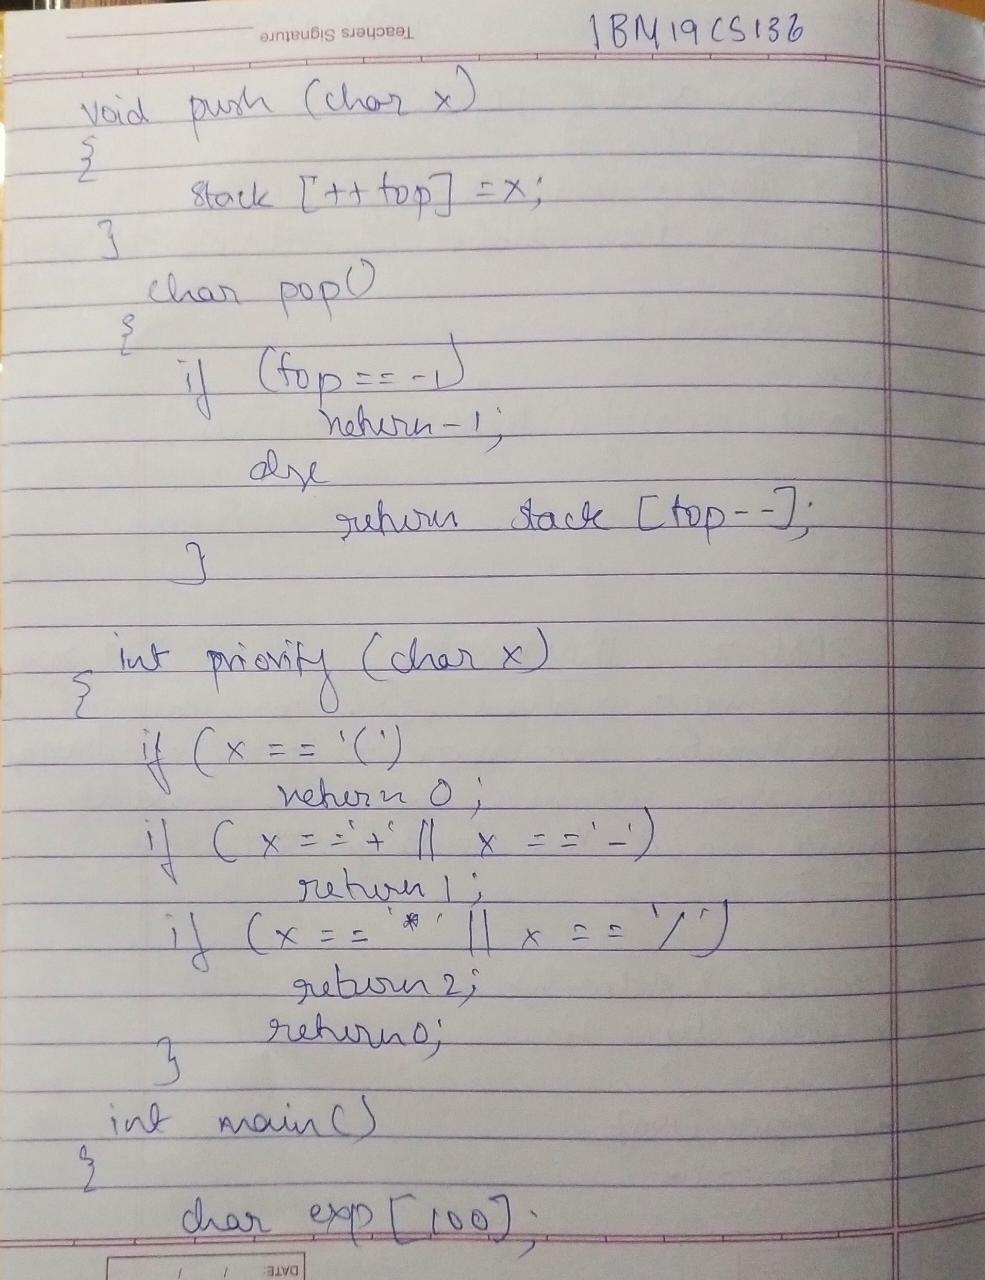 Teachers Signature
1BM19CS136
void push (char x)
{
stack [++top] =x;
}
char pop()
{
if (top == -1)
return -1;
else
return stack [top--];
}
int priority (char x)
{
if (x == '(')
return 0;
if (x == '+' || x == '-')
return 1;
if (x == '*' || x == '/')
return 2;
return 0;
}
int main()
{
char exp [100];
DATE: / /